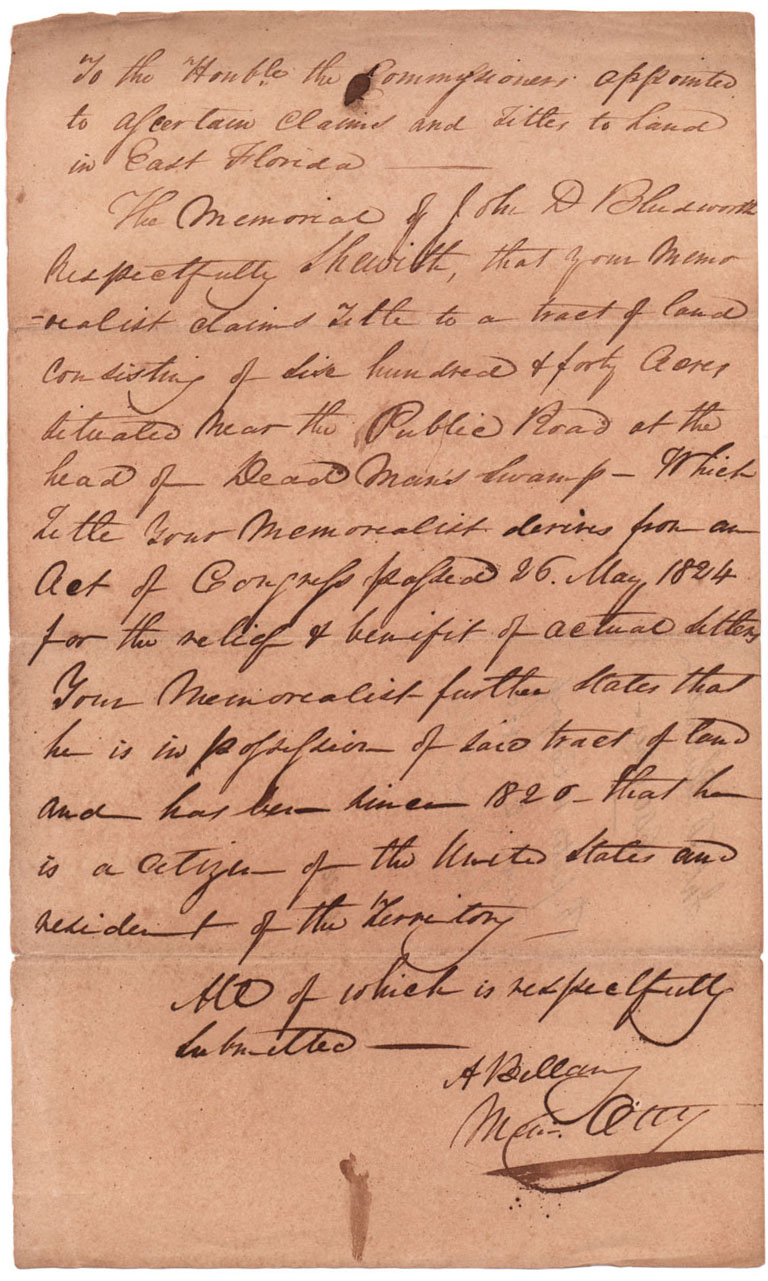 To the Honble. the Commissioners appointed
to ascertain Claims and Titles to Land
in East Florida
The Memorial of John D Bludworth
Respectfully Shewith, that your Memo
-realist claims Title to a tract of land
Consisting of Six hundred & forty Acres
Situated near the Public Road at the
head of Dead Man's Swamp - Which
Title Your Memorealist derives from an
Act of Congress passed 26. May 1824
for the relief & benifit of actual Settlers
Your Memorealist further States that
he is in possession of said tract of land
and has been since 1820 - that he
is a citizen of the United States and
resident of the Territory
All of which is respectfully
Submitted
A Bellamy
Mem. Atty